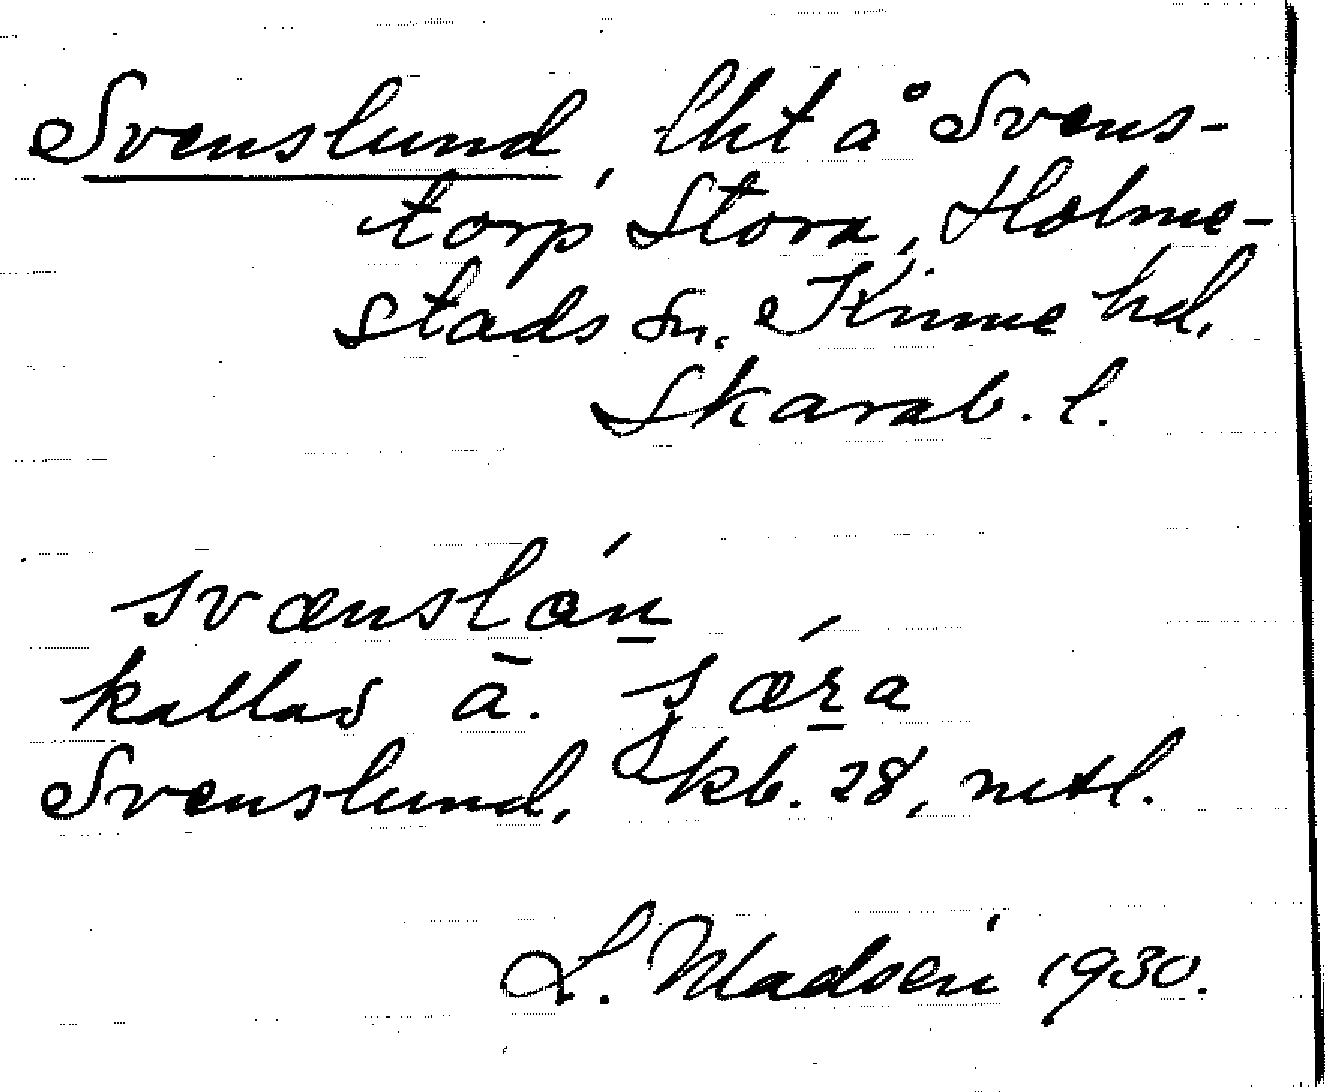 Svenslund, lht å Svens-
torp Stora, Holme-
stads sn. Kinne hd.
Skarab. l.
svænslǿn̲
kallas ä. sǽr̲a
Svenslund, kb. 28, mtl.
L. Madsén 1930.